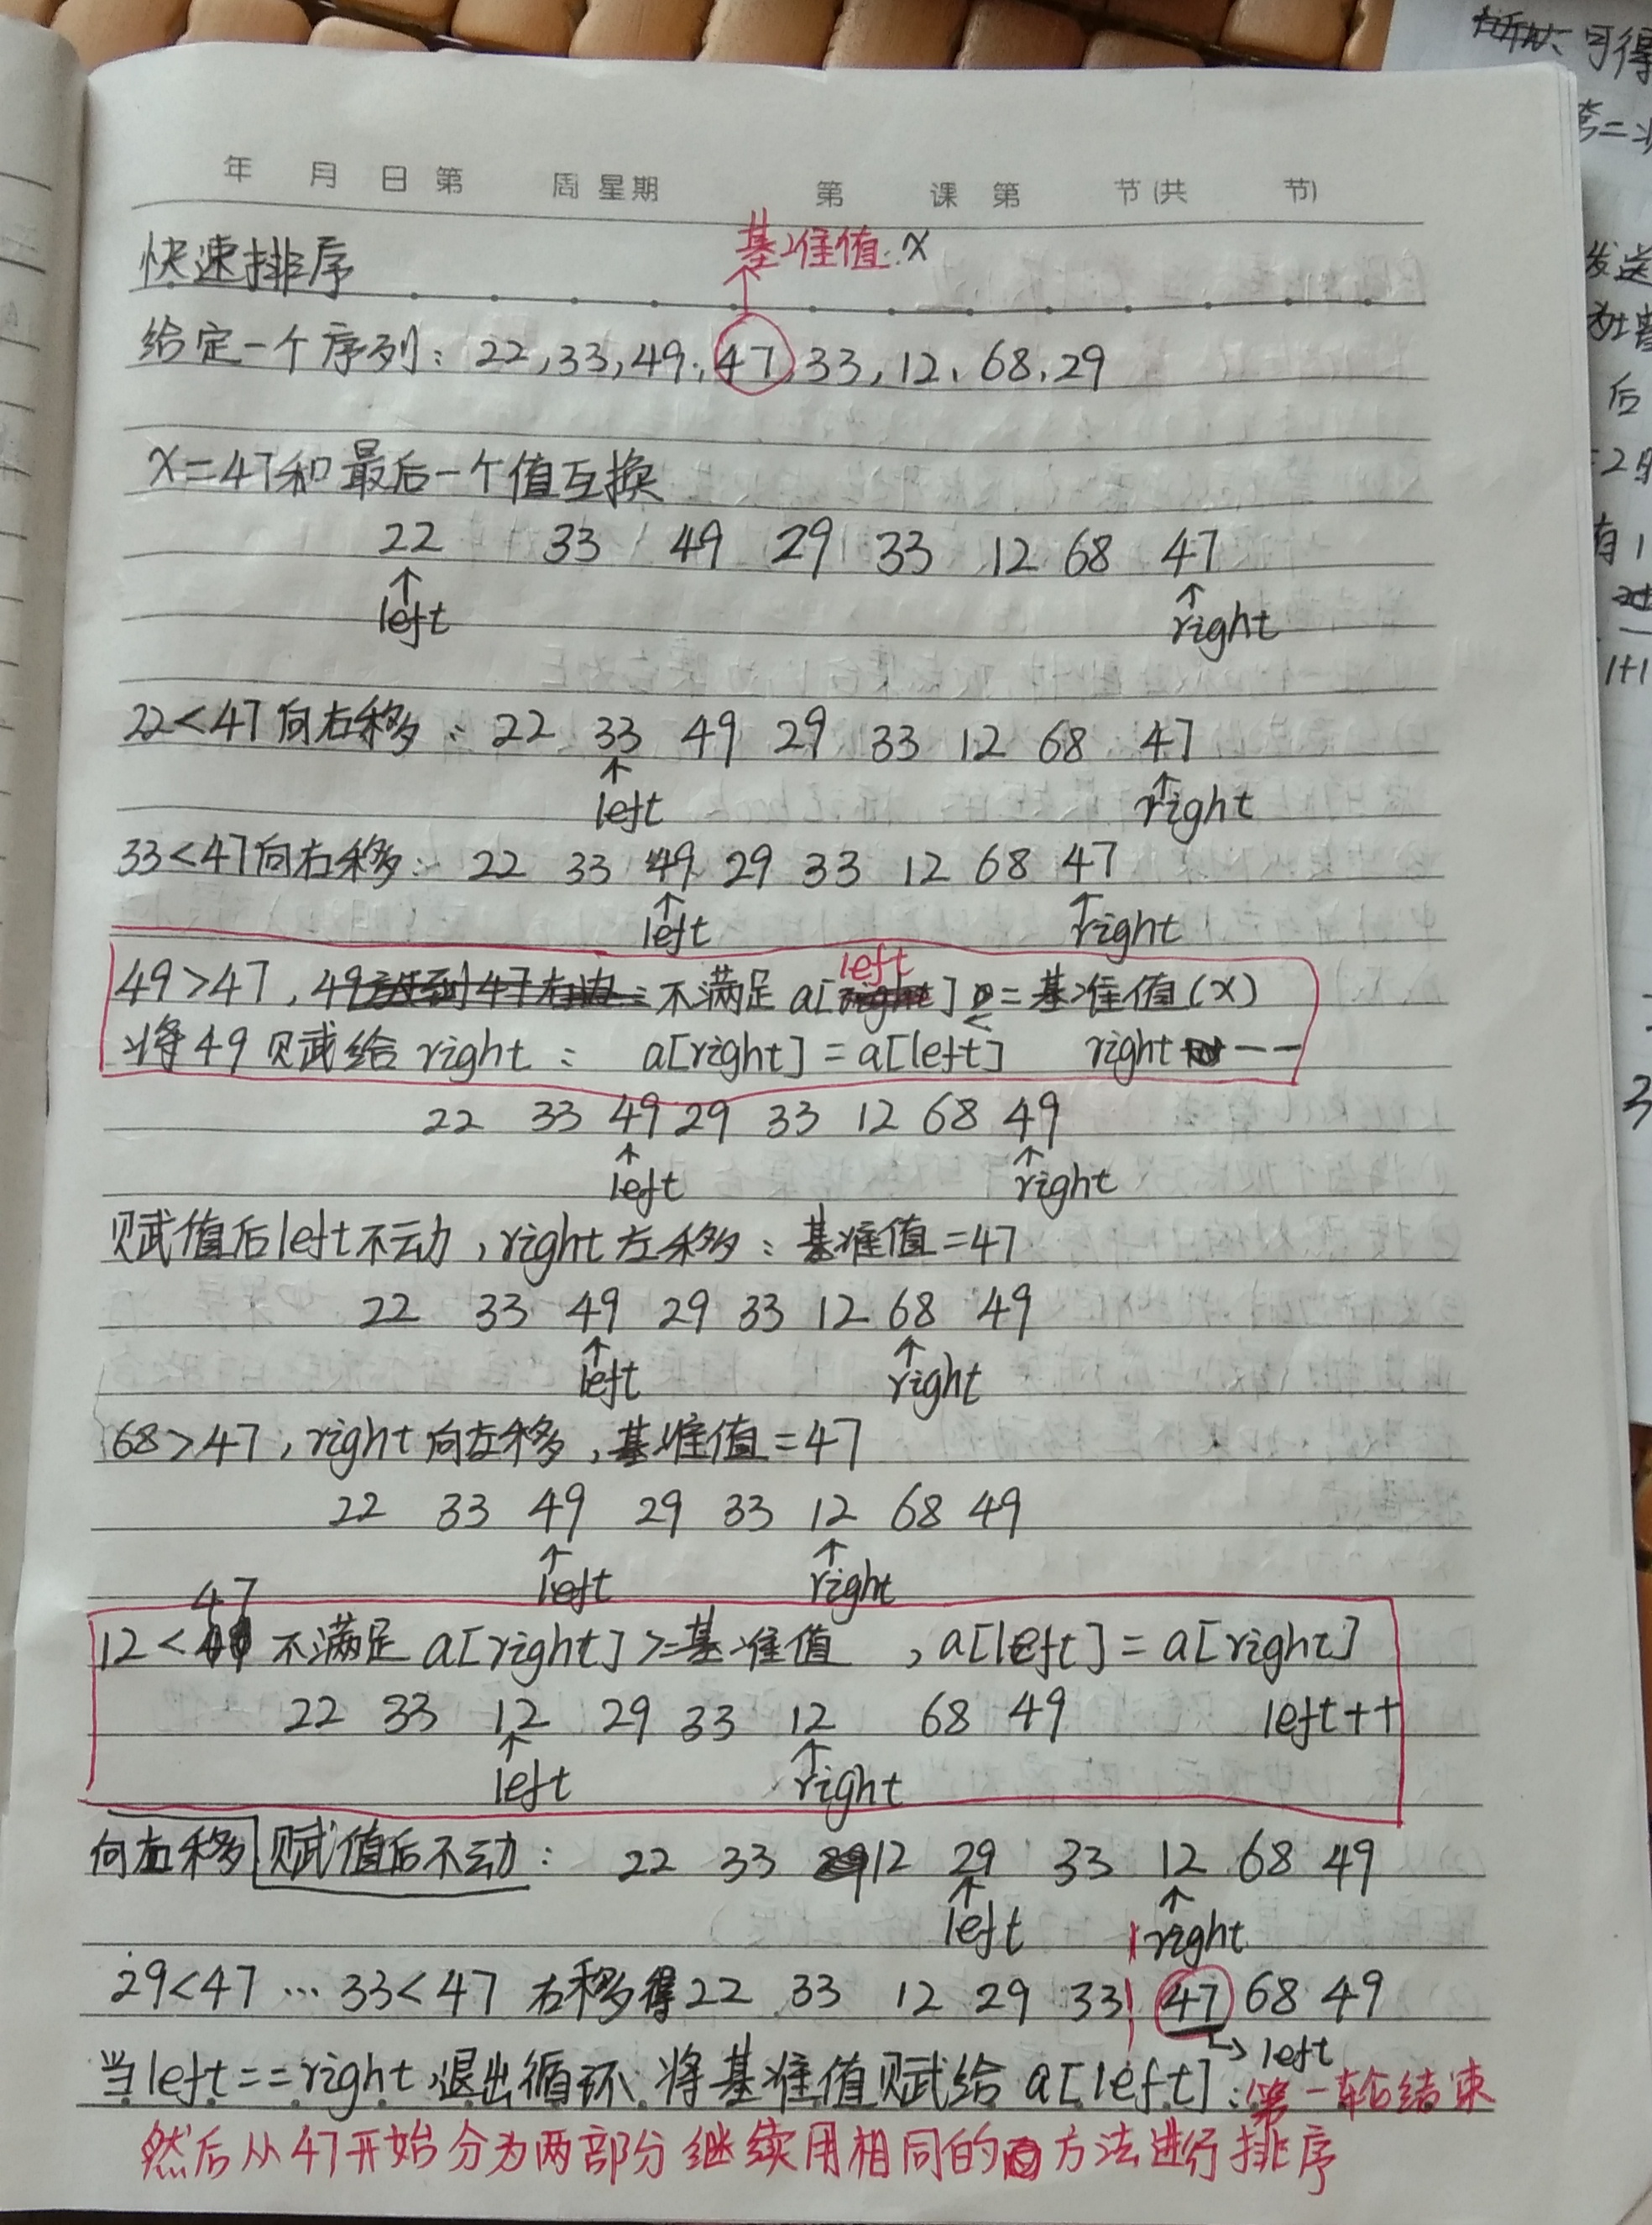 年 月 日 第 周 星期 第 课 第 节(共 节)
基准值:x
快速排序
给定一个序列: 22,33,49,47,33,12,68,29
x=47和最后一个值互换
22 33 49 29 33 12 68 47
left right
22<47向右移: 22 33 49 29 33 12 68 47
left right
33<47向右移: 22 33 49 29 33 12 68 47
left right
left
49>47, 不满足 a[ ] <= 基准值(x)
将49赋给right: a[right]=a[left] right--
22 33 49 29 33 12 68 49
left right
赋值后left不动,right左移: 基准值=47
22 33 49 29 33 12 68 49
left right
68>47,right向左移,基准值=47
22 33 49 29 33 12 68 49
left right
47
12< 不满足 a[right]>=基准值 ,a[left]=a[right]
22 33 12 29 33 12 68 49 left++
left right
向右移 赋值后不动: 22 33 12 29 33 12 68 49
left right
29<47 … 33<47 右移得22 33 12 29 33 47 68 49
left
当left==right,退出循环,将基准值赋给a[left]:第一轮结束
然后从47开始分为两部分继续用相同的方法进行排序
可得
第二
发送
后
有1
1+1
3